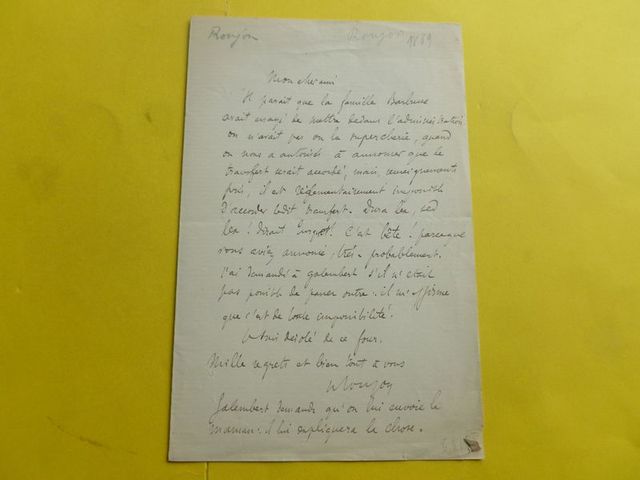 Roujon
Roujon 1889
Mon cher ami
Il parait que la famille Barbusse
avait essayé de mettre dedans l'administration
on n'avait pas vu la supercherie, quand
on nous a autorisés à annoncer que le
transfert serait accordé; mais, renseignements
pris, il est réglementairement impossible
d'accorder ledit transfert. Dura lex, sed
lex! disait C'est bête! parceque
vous aviez annoncé, très-probablement.
J'ai demandé à Galembert s'il n'était
pas possible de passer outre. il m'affirme
que c'est de toute impossibilité.
désolé de ce four.
Mille regrets et bien tout à vous
Roujon
Galembert demande qu'on lui envoie la
maman: il lui expliquera la chose.